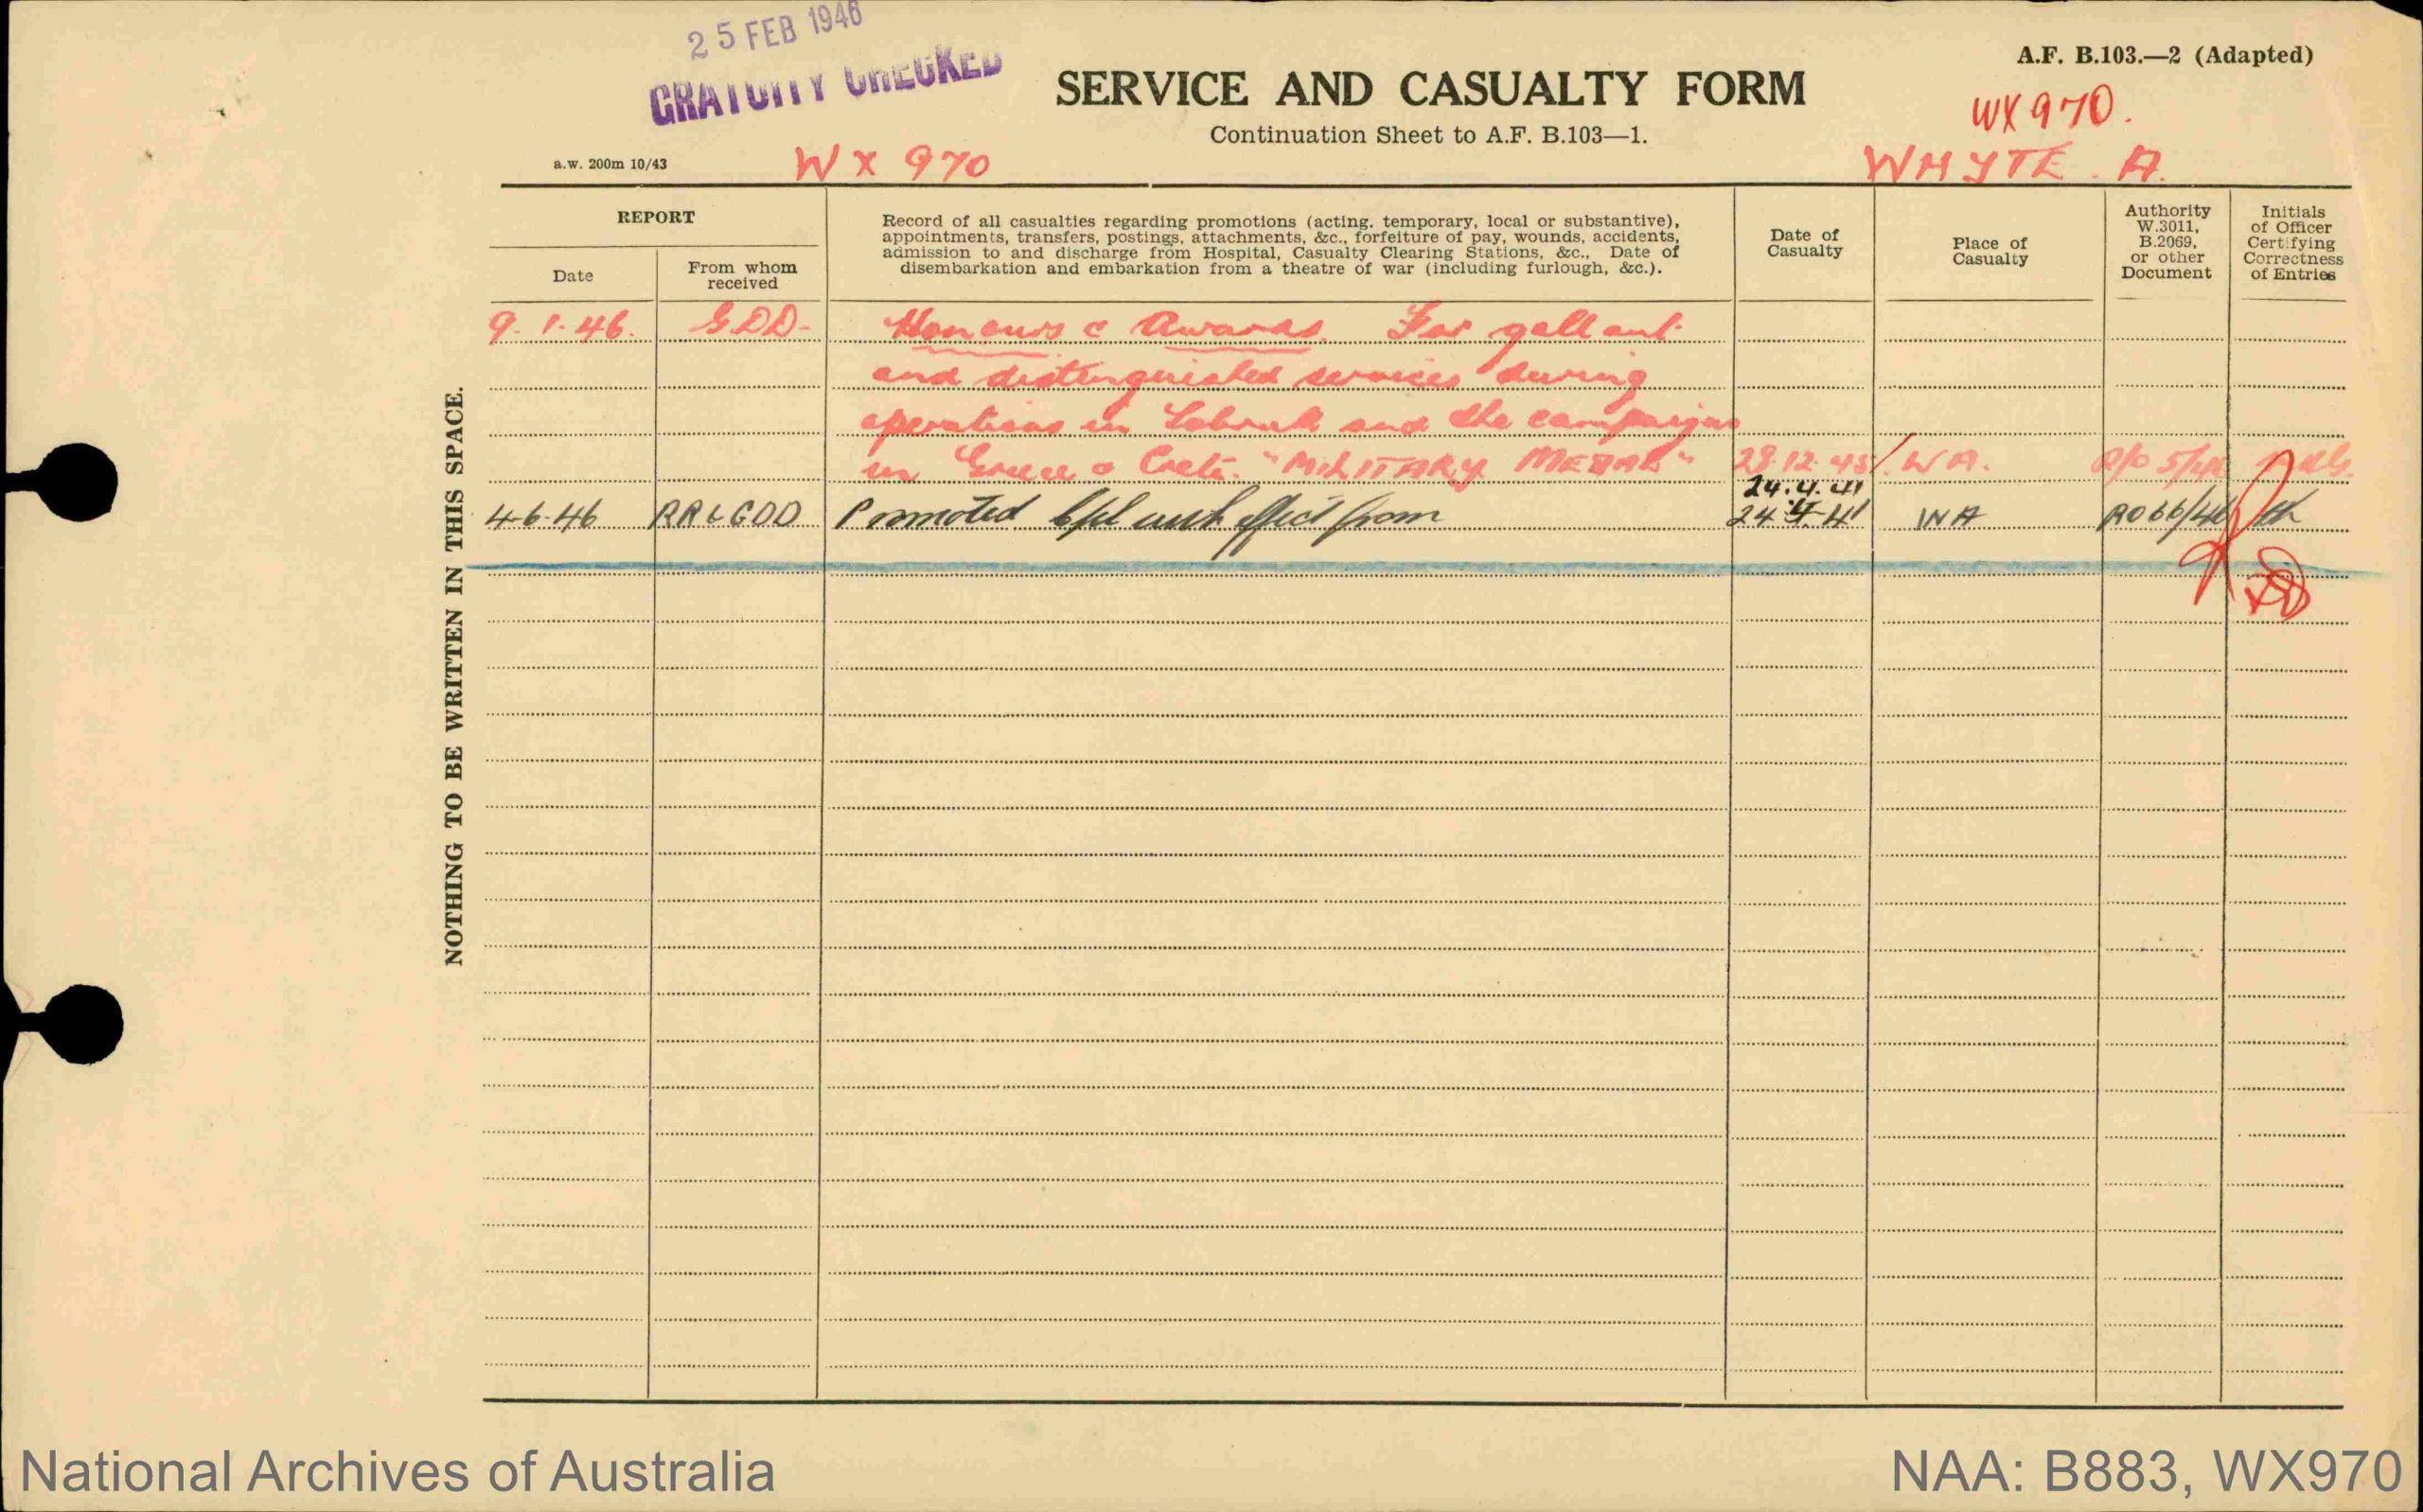 25 FEB 1946
GRATUITY CHECKED
SERVICE AND CASUALTY FORM
Continuation Sheet to A.F. B.103—1.
A.F. B.103.—2 (Adapted)
WX970.
a.w. 200m 10/43
WX 970
WHYTE. A.
NOTHING TO BE WRITTEN IN THIS SPACE.
REPORT
Date
From whom
received
Record of all casualties regarding promotions (acting. temporary, local or substantive),
appointments, transfers, postings, attachments, &c., forfeiture of pay, wounds, accidents,
admission to and discharge from Hospital, Casualty Clearing Stations, &c., Date of
disembarkation and embarkation from a theatre of war (including furlough, &c.).
Date of
Casualty
Place of
Casualty
Authority
W.3011,
B.2069,
or other
Document
Initials
of Officer
Certifying
Correctness
of Entries
9.1.46. GDD- Honours & Awards. For gallant
and distinguished services during
operations in Tobruk and the campaigns
in Greece & Crete. "MILITARY MEDAL" 28.12.45 W.A. R/O 5/46
24.4.41
4-6-46 RRLGDD Promoted Cpl with effect from 24.4.41 WA RO66/46
National Archives of Australia
NAA: B883, WX970